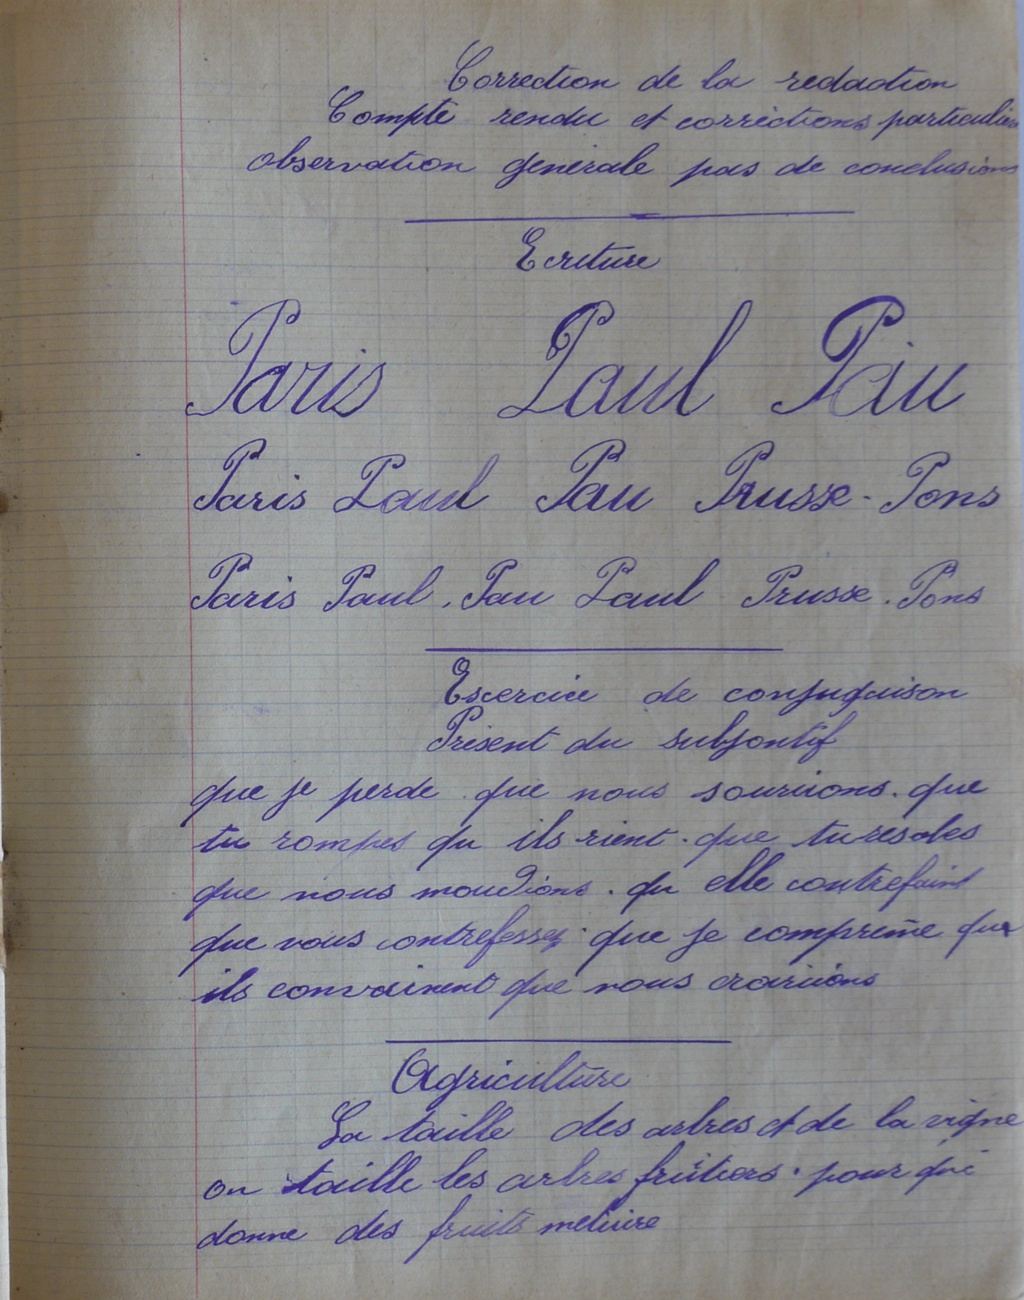 Correction de la redaction
Compte rendu et corrections particulières
observation generale pas de conclusions
Ecriture
Paris Paul Pau
Paris Paul Pau Prusse - Pons
Paris Paul . Pau Paul Prusse . Pons
Exercice de conjuguaison
Présent du subjontif
que je perde que nous souriions. que
tu rompes qu ils rient. que tu
que nous moudions. qu elle
que vous contrefessez. que je comprime qu
ils convainent que nous
Agriculture
La taille des arbres et de la vigne
on taille les arbres fruitiers. pour qui
donne des fruits